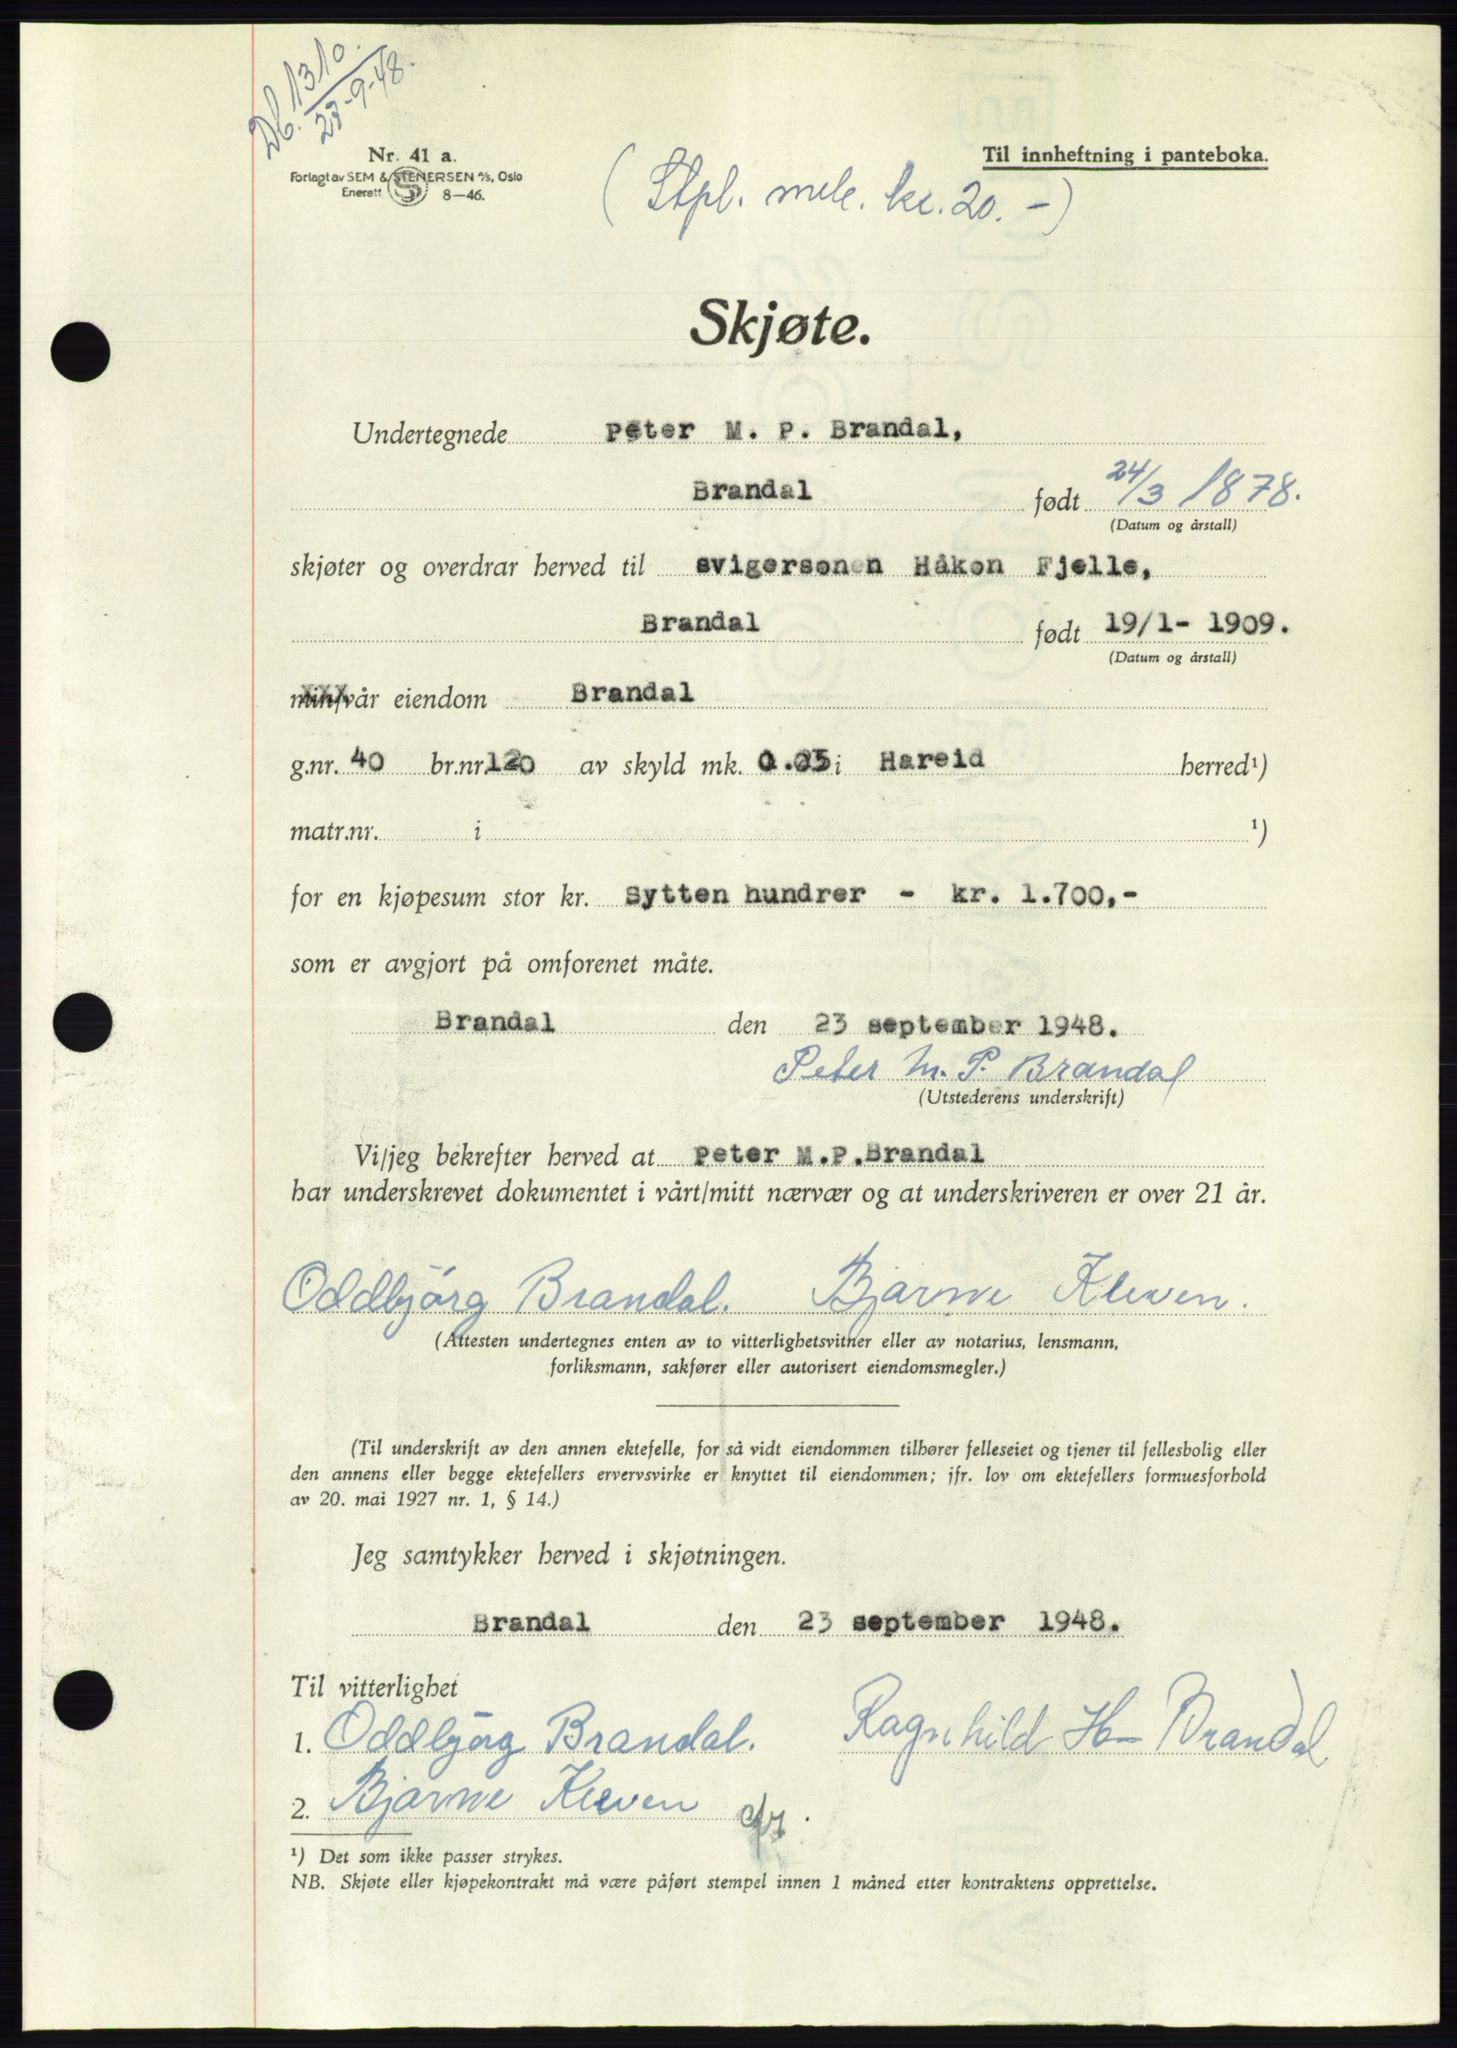 Db. 1310.
28-9-48.
Nr. 41 a.
Forlagt av SEM & STENERSEN A/S, Oslo
Enerett 8—46.
Til innheftning i panteboka.
(Stpl. merke kr. 20. -)
Skjøte.
Undertegnede Peter M. P. Brandal,
Brandal født 24/3 1878.
(Datum og årstall)
skjøter og overdrar herved til svigersønen Håkon Fjelle,
Brandal født 19/1- 1909.
(Datum og årstall)
min/vår eiendom Brandal
g.nr. 40 br.nr. 120 av skyld mk. 0.05 i Hareid herred¹)
matr.nr. i ¹)
for en kjøpesum stor kr. Sytten hundrer - kr. 1.700,-
som er avgjort på omforenet måte.
Brandal den 23 september 1948.
Peter M. P. Brandal
(Utstederens underskrift)
Vi/jeg bekrefter herved at Peter M.P.Brandal
har underskrevet dokumentet i vårt/mitt nærvær og at underskriveren er over 21 år.
Oddbjørg Brandal. Bjarne Kleven.
(Attesten undertegnes enten av to vitterlighetsvitner eller av notarius, lensmann,
forliksmann, sakfører eller autorisert eiendomsmegler.)
(Til underskrift av den annen ektefelle, for så vidt eiendommen tilhører felleseiet og tjener til fellesbolig eller
den annens eller begge ektefellers ervervsvirke er knyttet til eiendommen; jfr. lov om ektefellers formuesforhold
av 20. mai 1927 nr. 1, § 14.)
Jeg samtykker herved i skjøtningen.
Brandal den 23 september 1948.
Til vitterlighet
1. Oddbjørg Brandal. Ragnhild H- Brandal
2. Bjarne Kleven
¹) Det som ikke passer strykes.
NB. Skjøte eller kjøpekontrakt må være påført stempel innen 1 måned etter kontraktens opprettelse.